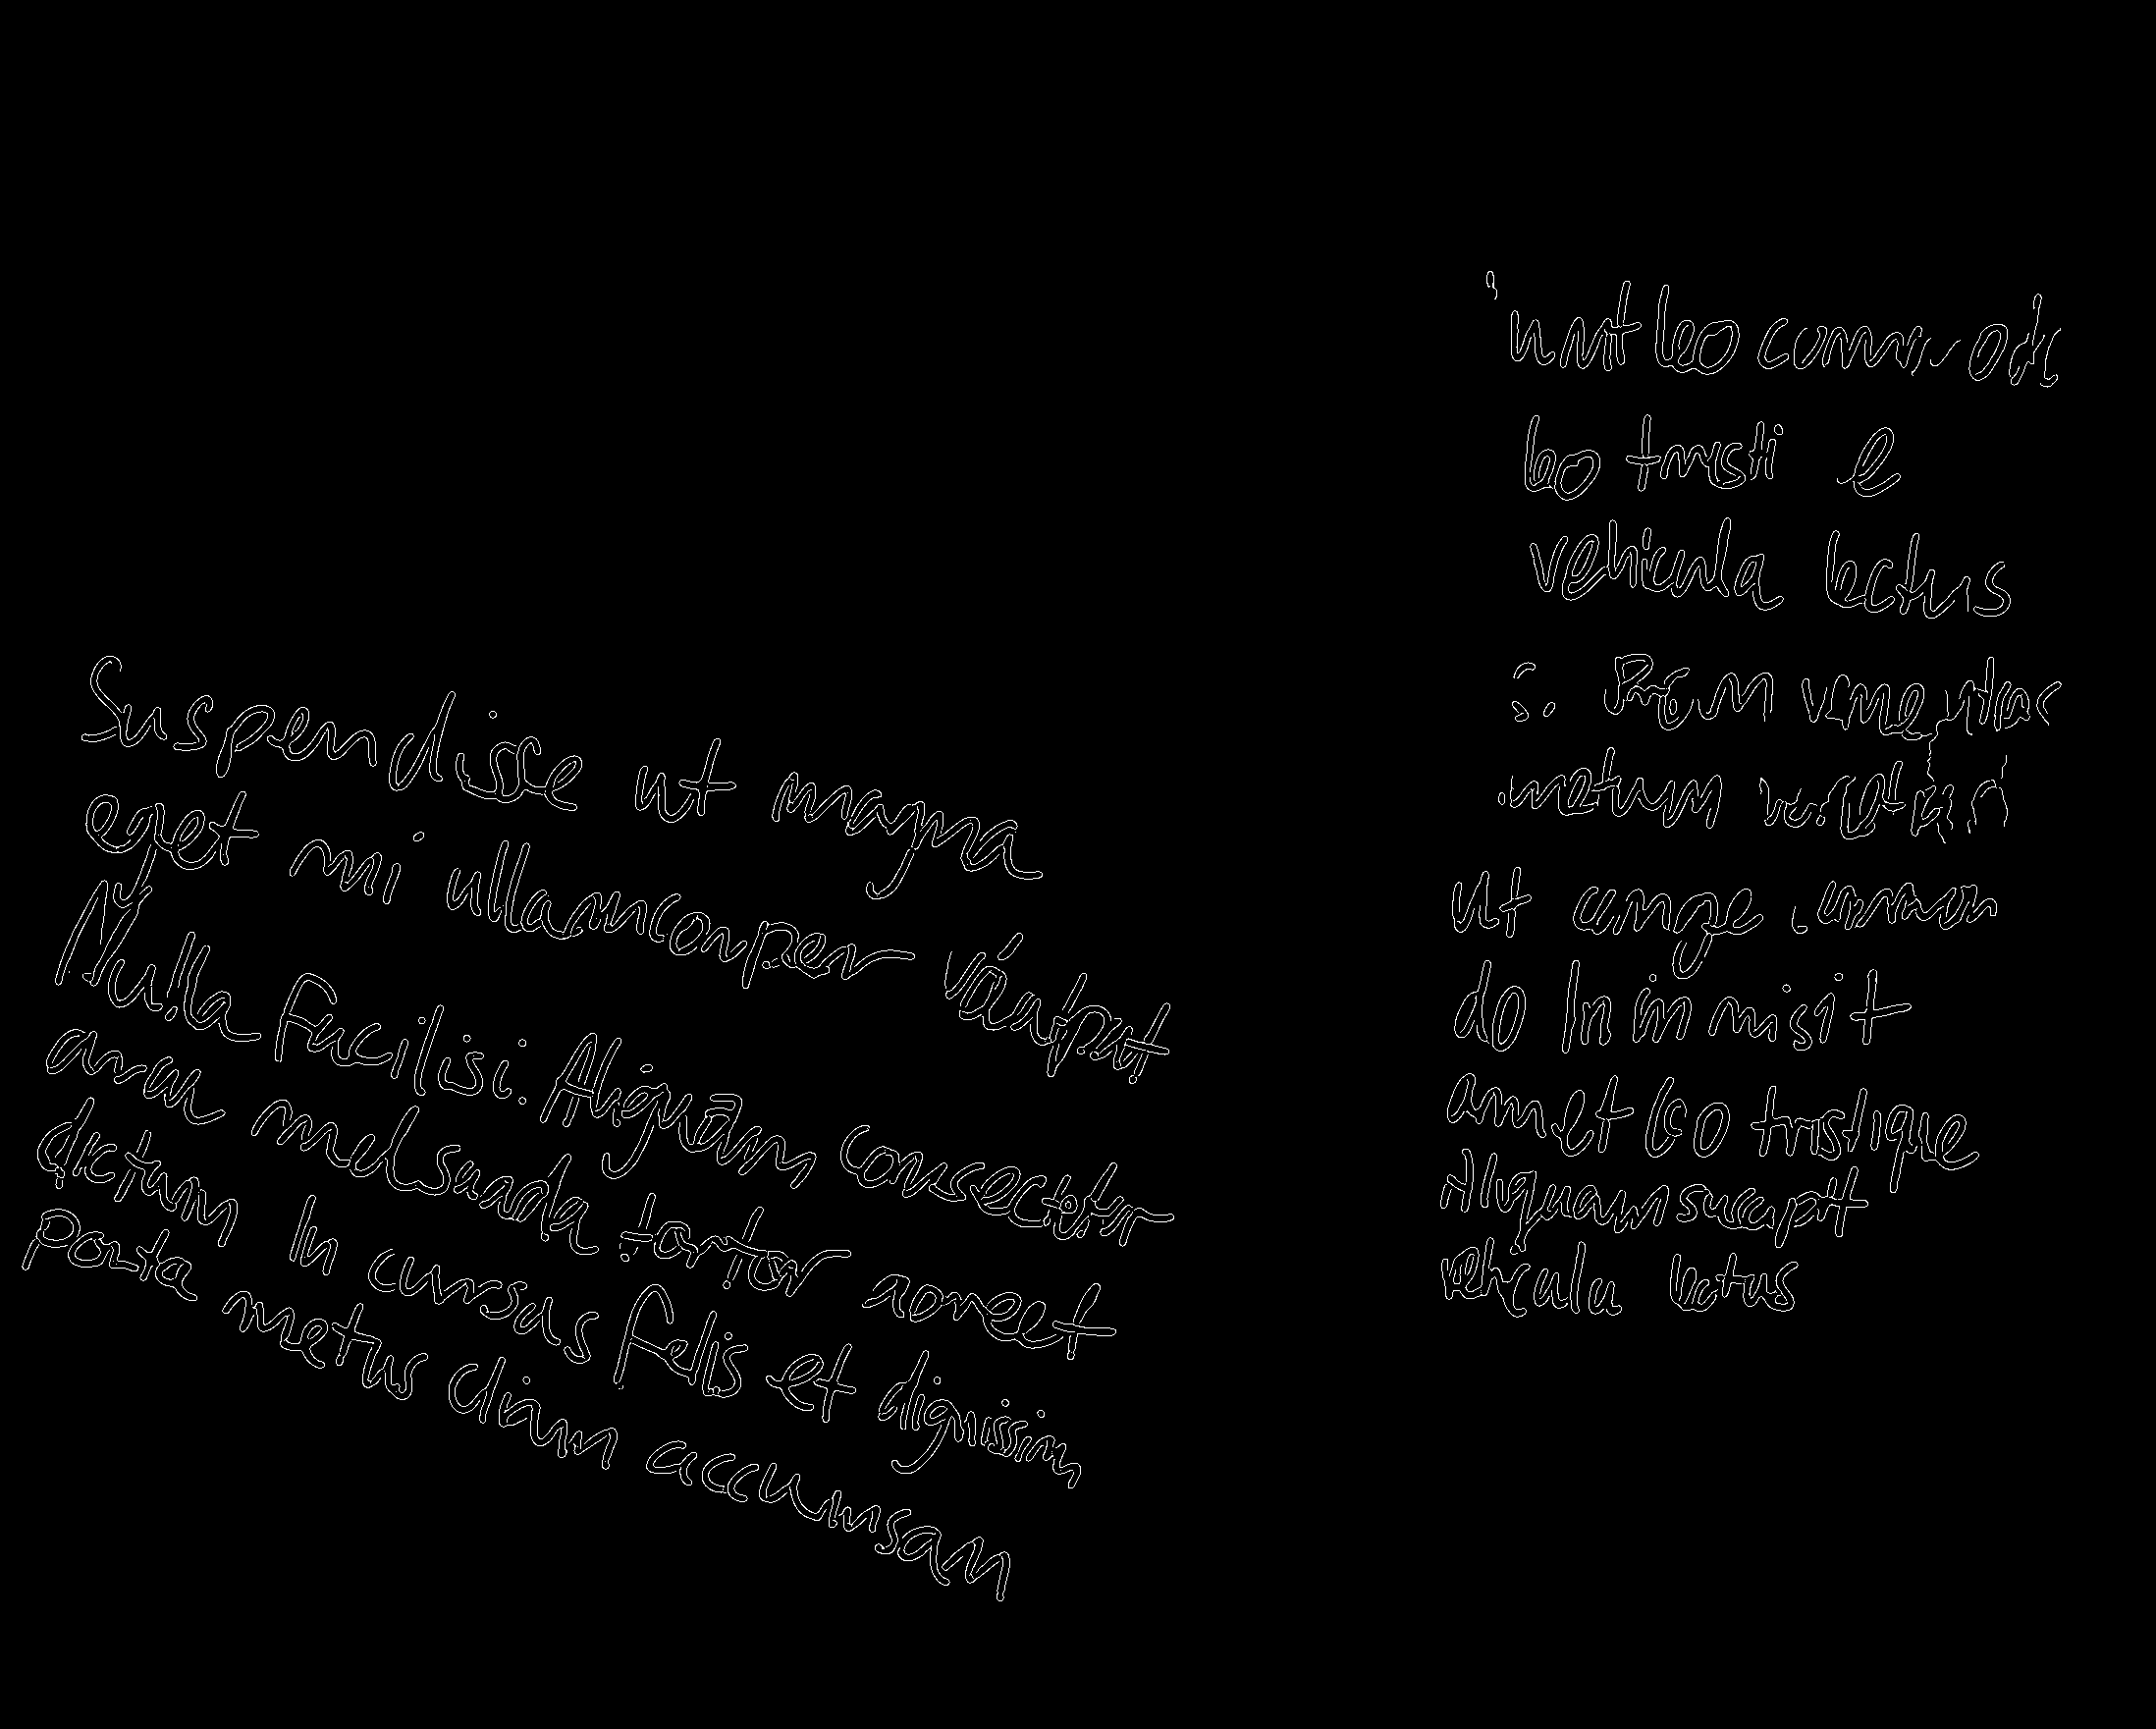 Suspendisse ut magna
eget mi ullamcorper volutpat
Nulla Facilisi. Aliquam consectetur
arcu malesuada tortor aoreet
dictum In cursus felis et dignissim
Porta metus diam accumsan
leo
leo tristi e
vehicula lectus
Proin
ut
do In in mi sit
amet leo tristique
Aliquam suscipit
vehicula lectus